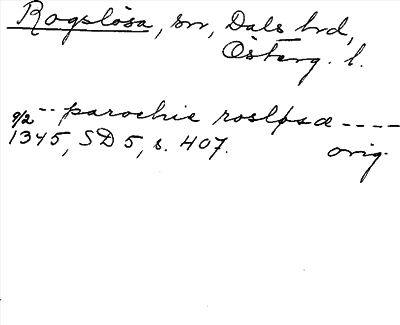 Rogslösa, sn, Dals hrd,
Österg. l.
9/2 -- parochie rosløsæ ----
1345, SD 5, s. 407. orig.